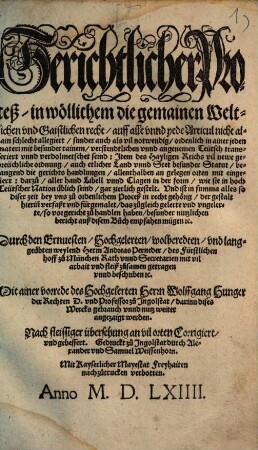 Gerichtlicher Pro
ceß / in wöllichem die gemainen Welt-
lichen vnd Gaistlichen recht / auff alle vnnd yede Articul nicht al-
lain schlecht allegiert / sunder auch als vil notwendig / ordenlich in ainer yeden
materi mit besunder tauren / verstendtlichen vnnd angenemen Teütsch trans-
feriert vnnd verdolmetscht send: Item des Hayligen Reichs vil neue ge-
richtliche ordnung / auch etlicher Land vnnd Stet besunder Statut / be
langend die gerichts handlungen / allenthalben an gelegen orten mit einge-
fiert: darzů / aller hand Libell vnnd Clagen in der form / wie sie in hoch
Teütscher Nation üblich seind / gar zierlich gestelt. Vnd ist in summa alles so
diser zeit bey vnd zů ordenlichem Proceß in recht gehörig / der gestalt
hierin verfaßt vnd fürgemalet / das zůgleich gelerte vnd vngeler-
te / so vor gericht zů handlen haben / besunder nutzlichen
bericht auß disem Bůch empfahen mügen ꝛc.
Durch den Ernuesten / Hochgelerten / wolberedten / vnd lang-
geübten weylend Herrn Andreas Perneder / des Fürstlichen
hoff zů München Rath vnnd Secretarien mit vil
arbait vnd fleiß zůsamen getragen
vnnd beschriben ꝛc.
Mit ainer vorrede des Hochgelerten Herrn Wolffgang Hunger
der Rechten D. vnd Professor zů Ingolstat / darinn dises
Wercks gebrauch vnnd nutz weiter
angezaigt werden.
Nach fleissiger übersehung an vil orten Corrigiert
vnd gebessert. Gedruckt zů Ingolstat durch Ale-
xander vnd Samuel Weissenhorn.
Mit Kayserlicher Mayestat Freyhaiten
nachzůtrucken verbotten.
Anno M. D. LXIIII.